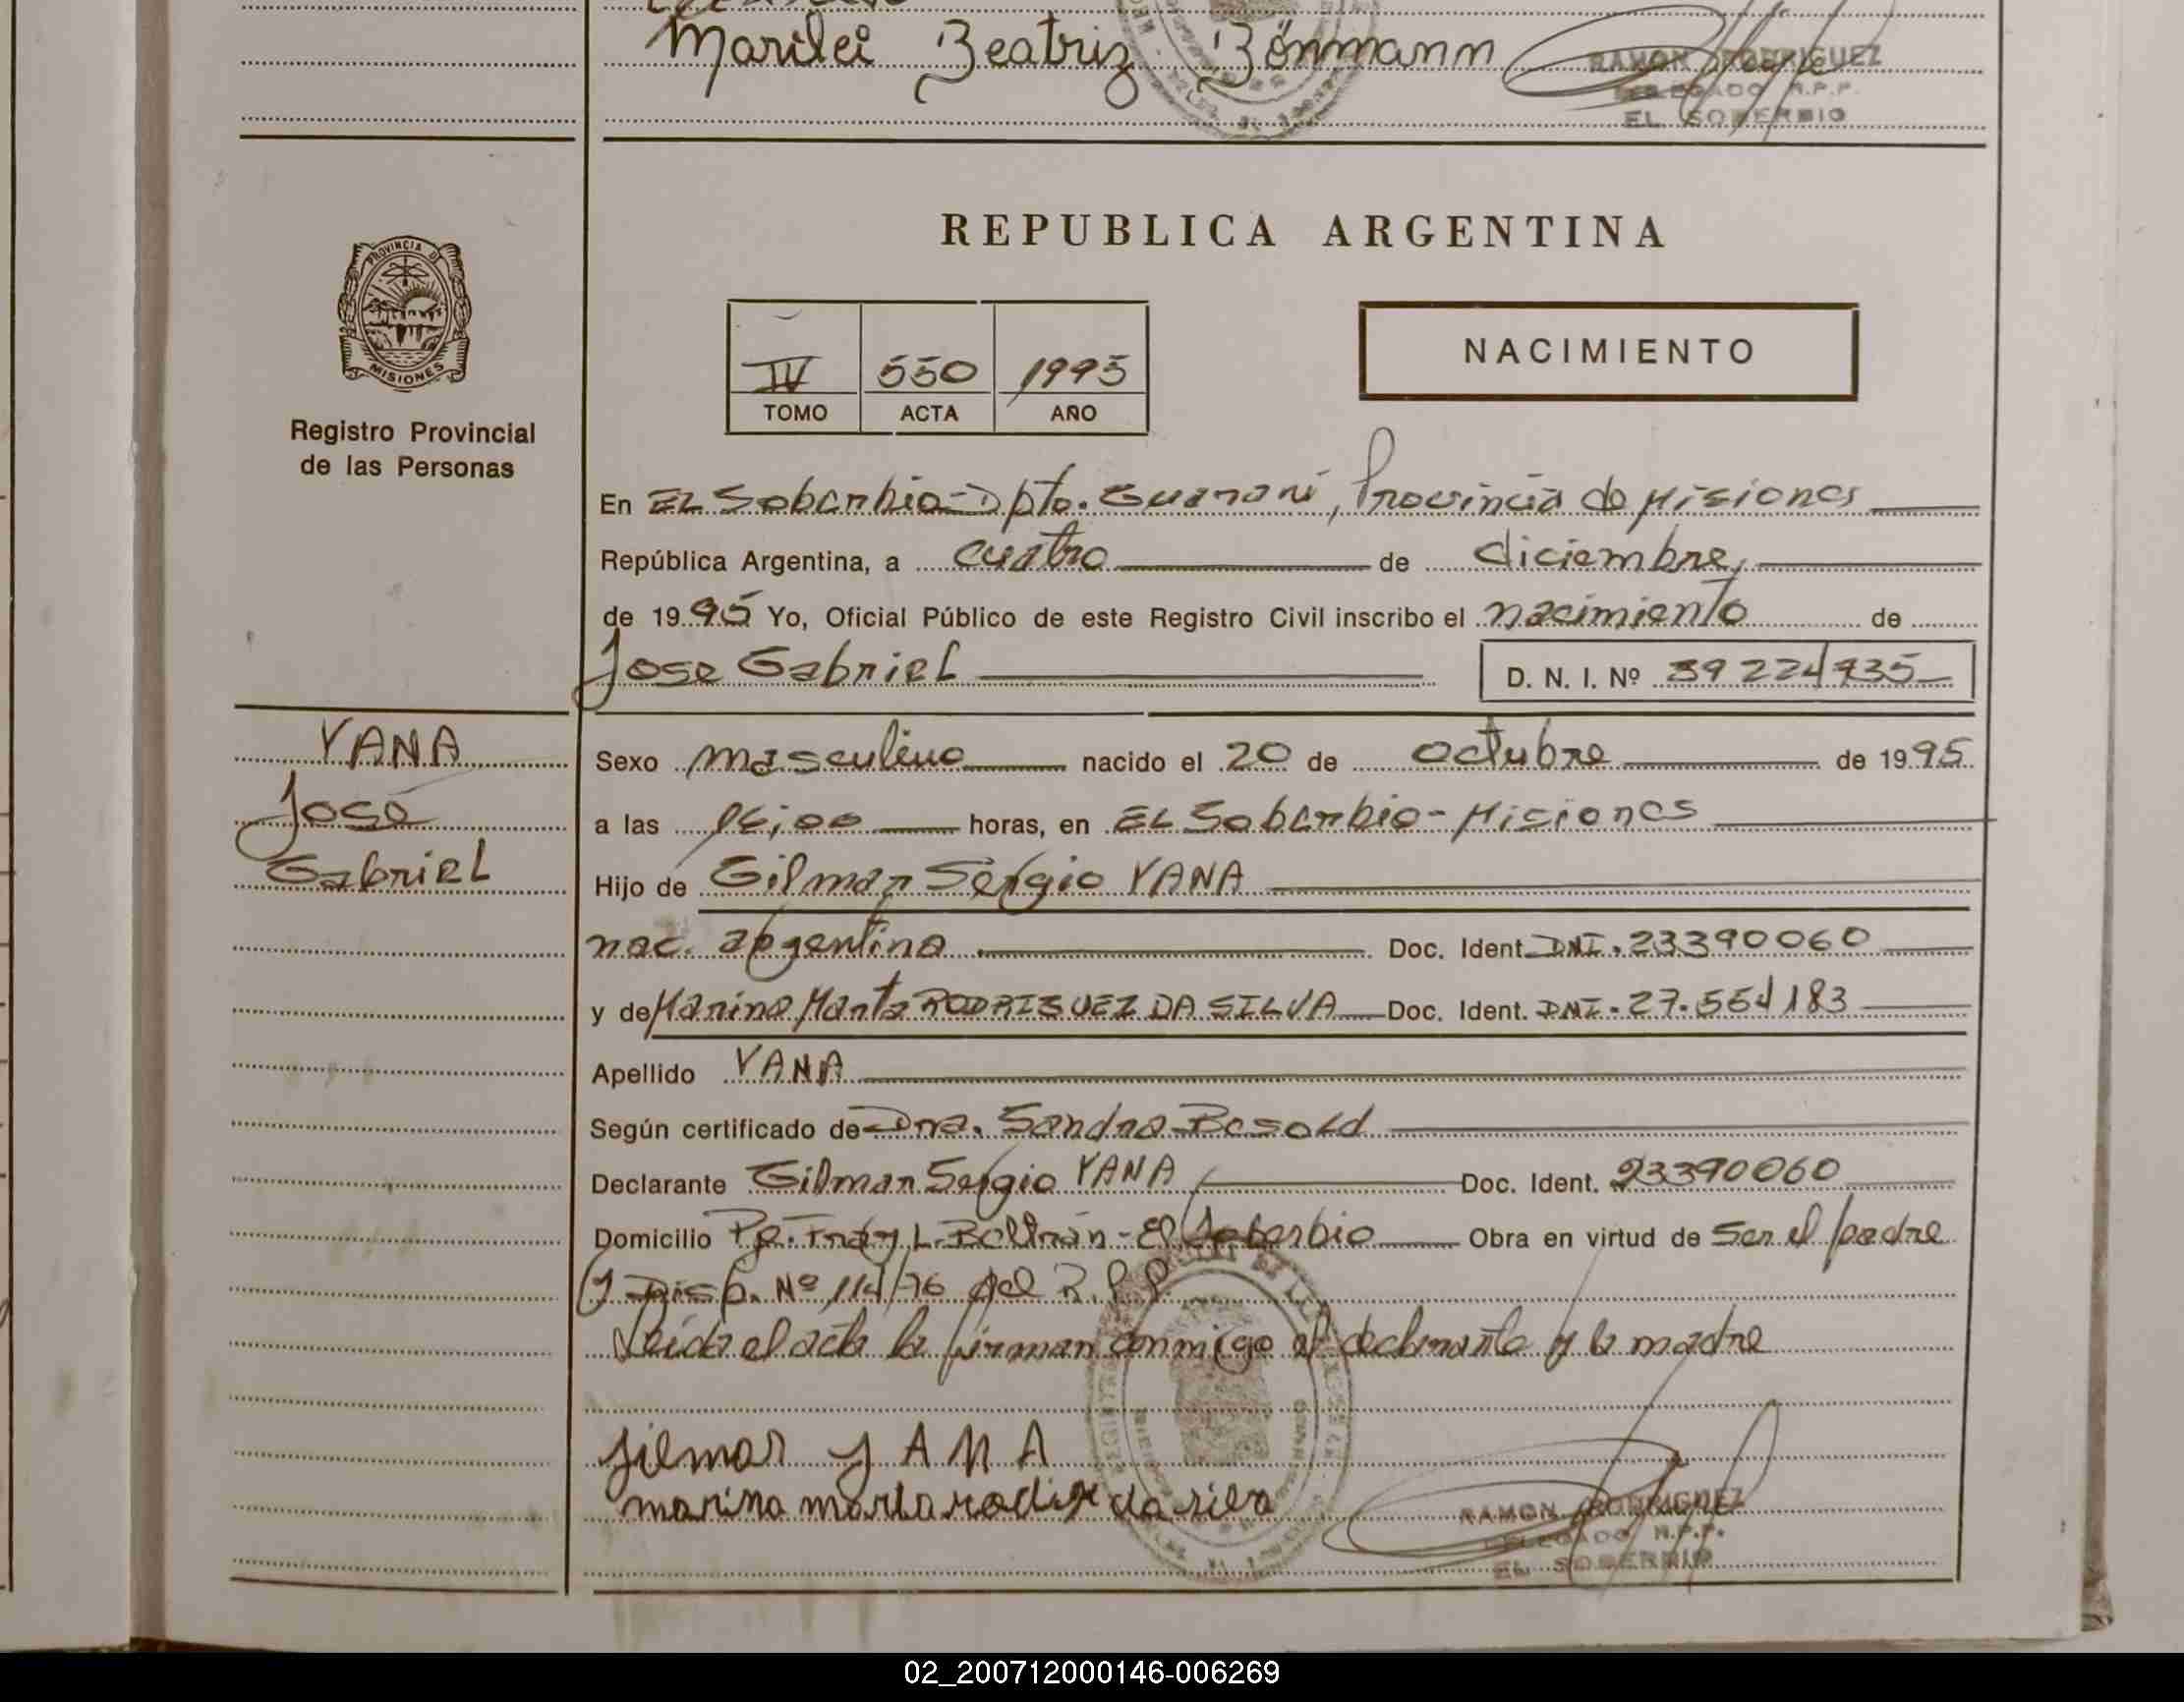 Marilei Beatriz Bönmann
RAMON RODRIGUEZ
DELEGADO R.P.P.
EL SOBERBIO
PROVINCIA DE
MISIONES
Registro Provincial
de las Personas
REPUBLICA ARGENTINA
IV 550 1995
TOMO ACTA AÑO
NACIMIENTO
En EL Soberbio-Dpto. Guarani, Provincia de Misiones
República Argentina, a cuatro de diciembre,
de 1995 Yo, Oficial Público de este Registro Civil inscribo el nacimiento de
Jose Gabriel D. N. I. Nº 39224935
YANA
José
Gabriel
Sexo masculino nacido el 20 de Octubre de 1995
a las 16,00 horas, en EL Soberbio-Misiones
Hijo de Gilmar Sergio YANA
nac. argentina Doc. Ident. DNI. 23390060
y de Marina Marta RODRIGUEZ DA SILVA Doc. Ident. DNI. 27.554183
Apellido YANA
Según certificado de Dra. Sandra Besold
Declarante Gilmar Sergio YANA Doc. Ident. 23390060
Domicilio Pje. Fray L. Beltrán-El Soberbio Obra en virtud de Ser el padre
y Disp. Nº 114/76 del R.P.P.
Leida el acta la firman conmigo el declarante y la madre
Jilmar YANA
marina marta da silva
RAMON RODRIGUEZ
DELEGADO R.P.P.
EL SOBERBIO
02_200712000146-006269